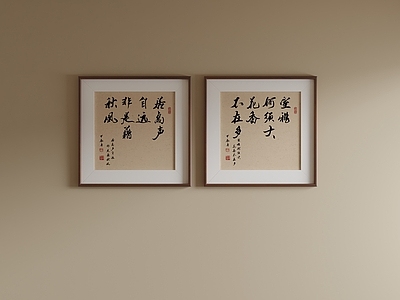 居高声
自远
非是藉
秋风
室雅
何须大
花香
不在多